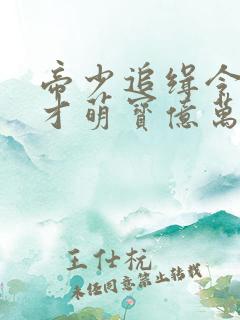 帝少追缉令
才萌宝亿万
王仕杬
未经同意禁止转载